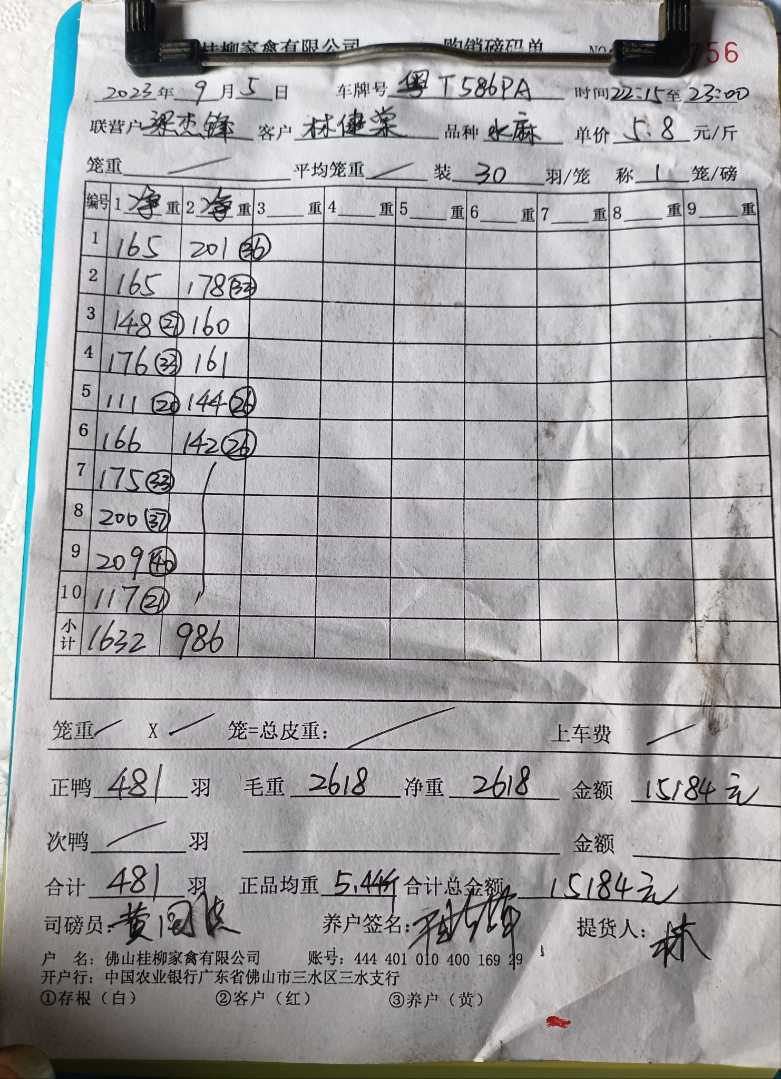 桂柳家禽有限公司 购销磅码单 NO 56
2023年9月5日 车牌号 粤T586PA 时间22:15至23:00
联营户 梁杰锋 客户 林健棠 品种 水麻 单价 5.8 元/斤
笼重 / 平均笼重 / 装 30 羽/笼 称 1 笼/磅
编号 1 净 重 2 净 重 3 重 4 重 5 重 6 重 7 重 8 重 9 重
1 165 201 (36)
2 165 178 (32)
3 148 (27) 160
4 176 (33) 161
5 111 (20) 144 (26)
6 166 142 (26)
7 175 (33)
8 200 (37)
9 209 (40)
10 117 (21)
小计 1632 986
笼重 / X / 笼=总皮重: / 上车费 /
正鸭 481 羽 毛重 2618 净重 2618 金额 15184元
次鸭 / 羽 金额
合计 481 羽 正品均重 5.44斤 合计总金额 15184元
司磅员: 养户签名: 提货人: 林
户 名: 佛山桂柳家禽有限公司 账号: 444 401 010 400 169 29
开户行: 中国农业银行广东省佛山市三水区三水支行
①存根(白) ②客户(红) ③养户(黄)